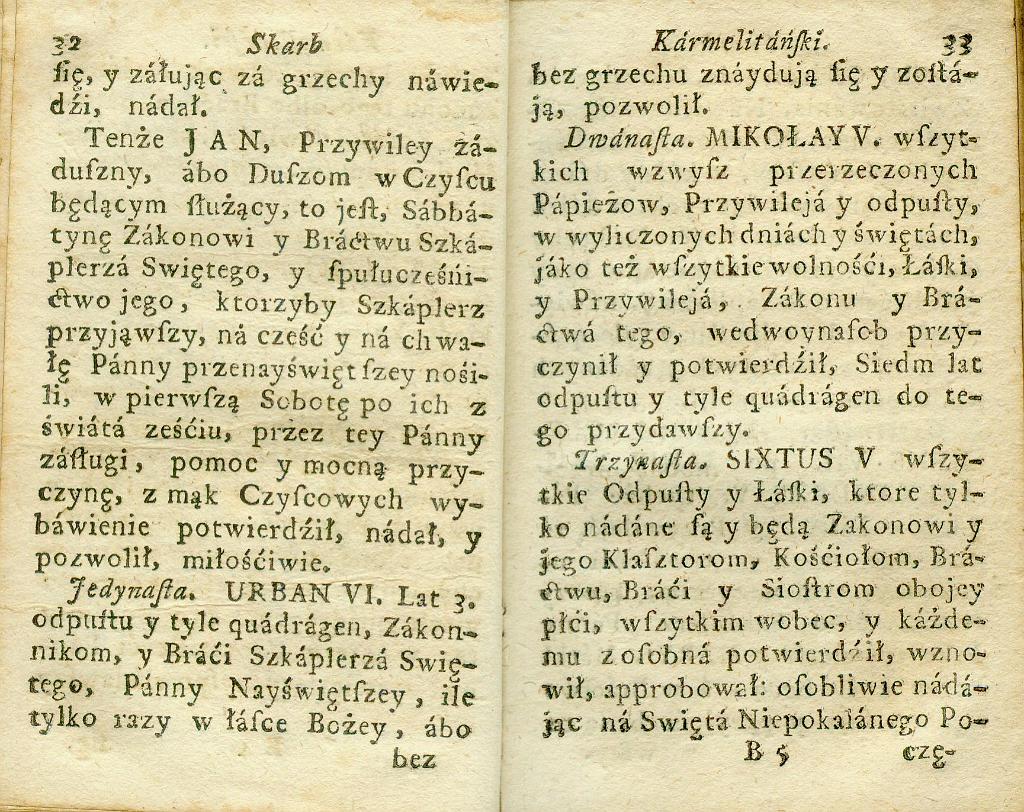 32 Skarb
ſię, y záłując zá grzechy náwie-
dźi, nádał.
Tenże JAN, Przywiley zá-
duſzny, ábo Duſzom w Czyſcu
będącym ſłużący, to jeſt, Sábbá-
tynę Zákonowi y Bráctwu Szká-
plerzá Swiętego, y ſpułucześńi-
ctwo jego, ktorzyby Szkáplerz
przyjąwſzy, ná cześć y ná chwa-
łę Pánny przenayświętſzey nośi-
li, w pierwſzą Sobotę po ich z
świátá ześćiu, przez tey Pánny
záſługi, pomoc y mocną przy-
czynę, z mąk Czyſcowych wy-
báwienie potwierdźił, nádał, y
pozwolił, miłośćiwie.
Jedynaſta. URBAN VI. Lat 3.
odpuſtu y tyle quádrágen, Zákon-
nikom, y Bráći Szkáplerzá Swię-
tego, Pánny Nayświętſzey, ile
tylko razy w łáſce Bożey, ábo
bez
Kármelitáńſki. 33
bez grzechu znáydują ſię y zoſtá-
ją, pozwolił.
Dwánaſta. MIKOŁAY V. wſzyt-
kich wzwyſz przerzeczonych
Pápieżow, Przywilejá y odpuſty,
w wyliczonych dniách y świętách,
jáko też wſzytkie wolnośći, Łáſki,
y Przywilejá, Zákonu y Brá-
ctwá tego, wedwoynaſob przy-
czynił y potwierdźił, Siedm lat
odpuſtu y tyle quádrágen do te-
go przydawſzy.
Trzynaſta. SIXTUS V wſzy-
tkie Odpuſty y Łáſki, ktore tyl-
ko nádáne ſą y będą Zakonowi y
jego Klaſztorom, Kośćiołom, Brá-
ctwu, Bráći y Sioſtrom obojey
płći, wſzytkim wobec, y káżde-
mu z oſobná potwierdźił, wzno-
wił, approbował: oſobliwie nádá-
jąc ná Swiętá Niepokalánego Po-
B 5 czę-